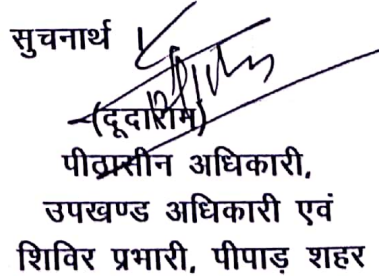 सुचनार्थ
(दूदाराम)
पीठासीन अधिकारी,
उपखण्ड अधिकारी एवं
शिविर प्रभारी, पीपाड़ शहर